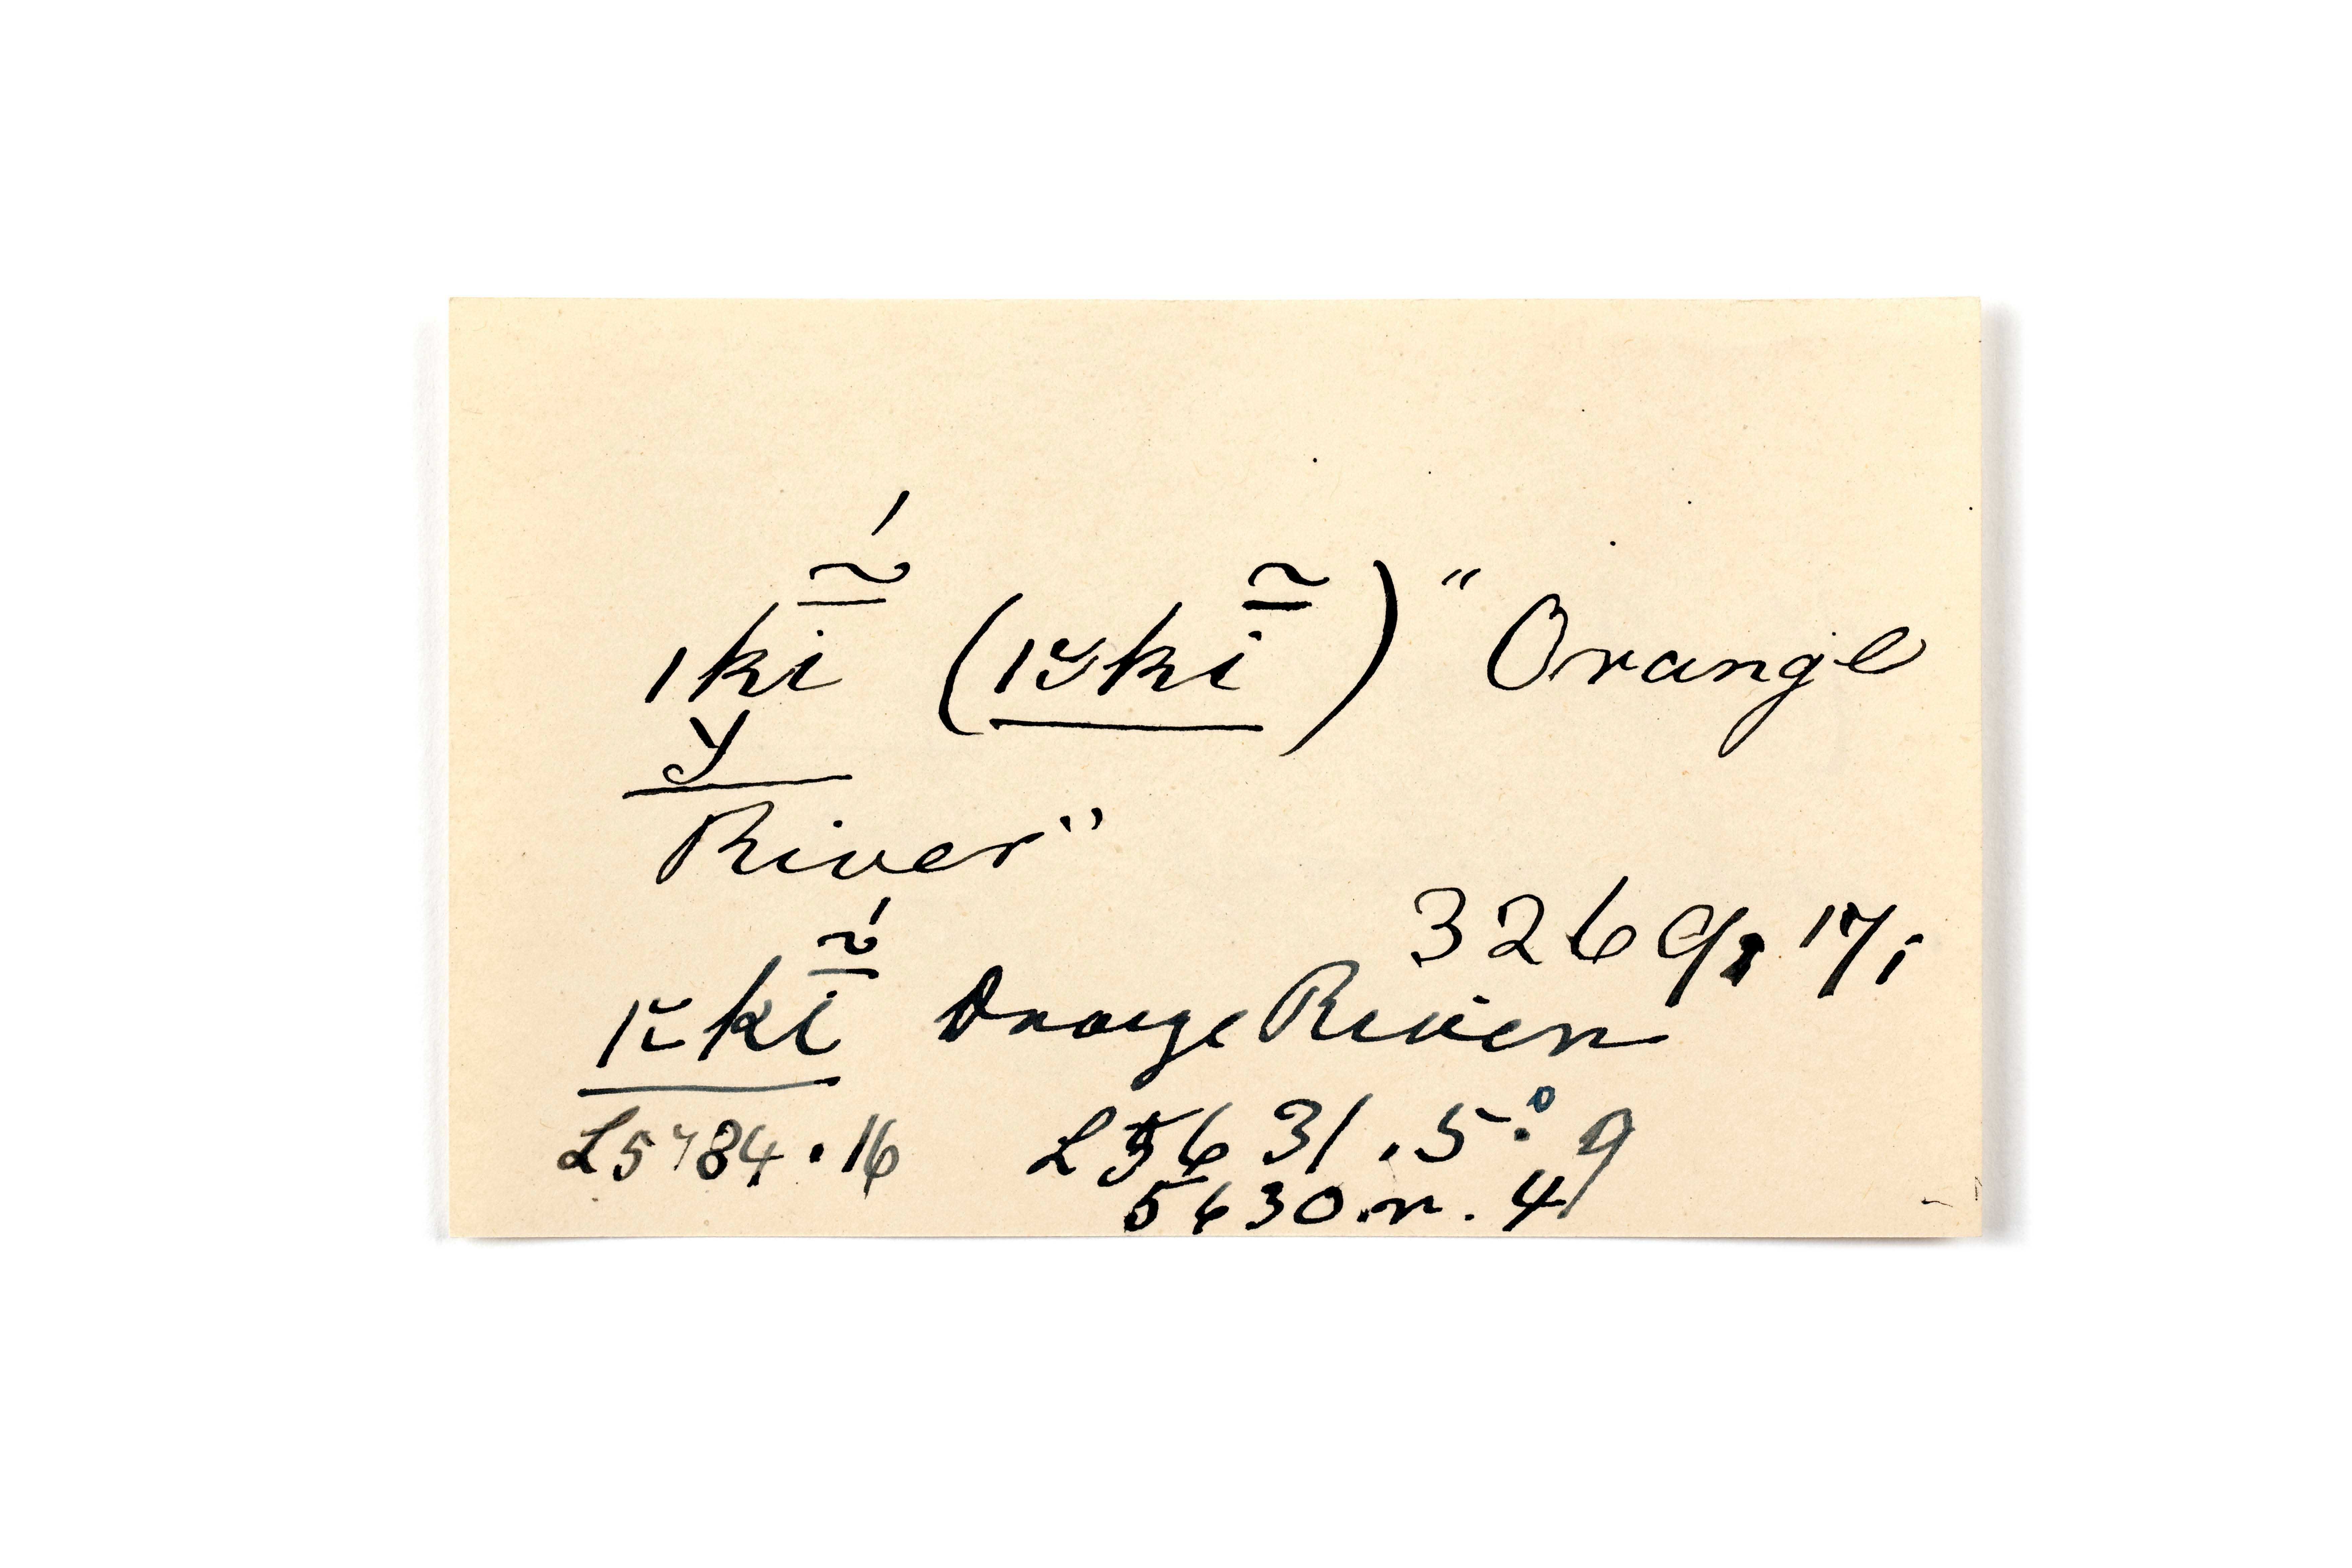 ǀkī̃́ (ǀykī̃) " Orange
y
River"
3269, 17,
ǀkī̃́ Orange River
L5784.16 L5631.5. 9
5630.r. 4